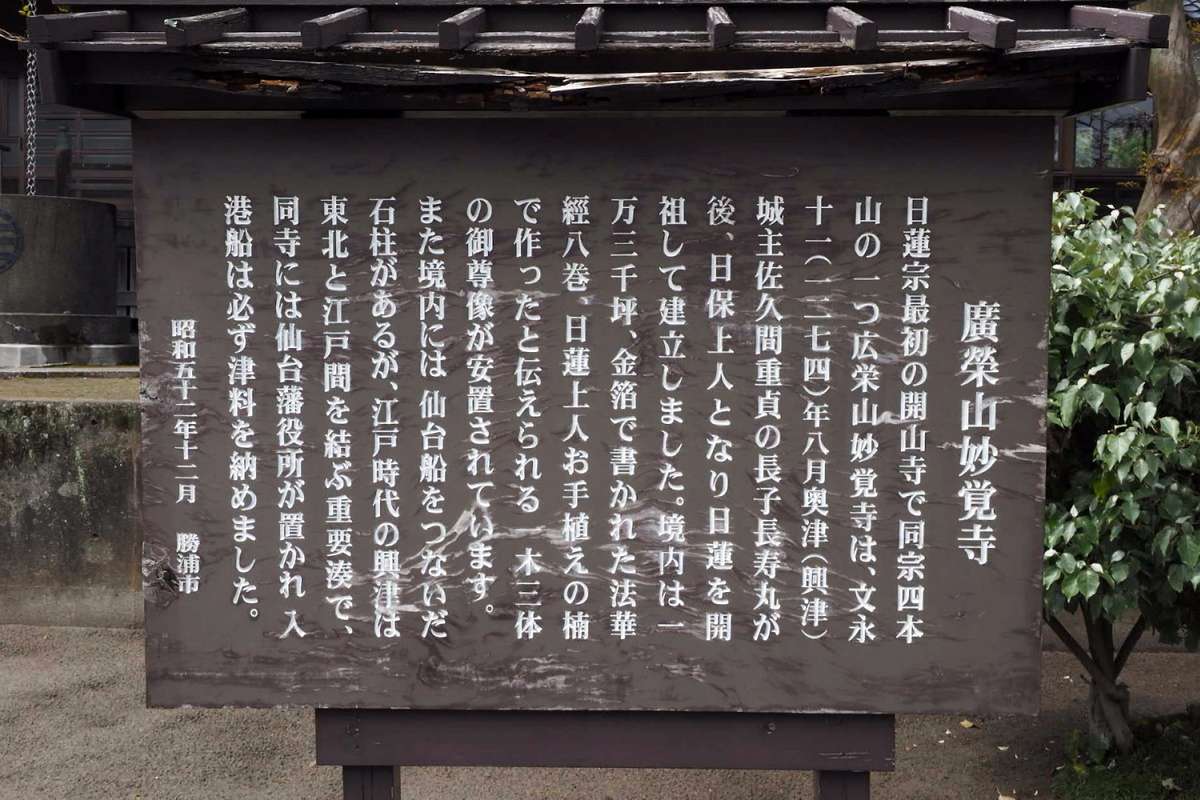 廣榮山妙覚寺
日蓮宗最初の開山寺で同宗四本
山の一つ広栄山妙覚寺は、文永
十一（一二七四）年八月奥津（興津）
城主佐久間重貞の長子長寿丸が
後、日保上人となり日蓮を開
祖して建立しました。境内は一
万三千坪、金箔で書かれた法華
經八巻、日蓮上人お手植えの楠
で作ったと伝えられる 一木三体
の御尊像が安置されています。
また境内には 仙台船をつないだ
石柱があるが、江戸時代の興津は
東北と江戸間を結ぶ重要湊で、
同寺には仙台藩役所が置かれ 入
港船は必ず津料を納めました。
昭和五十二年十二月 勝浦市